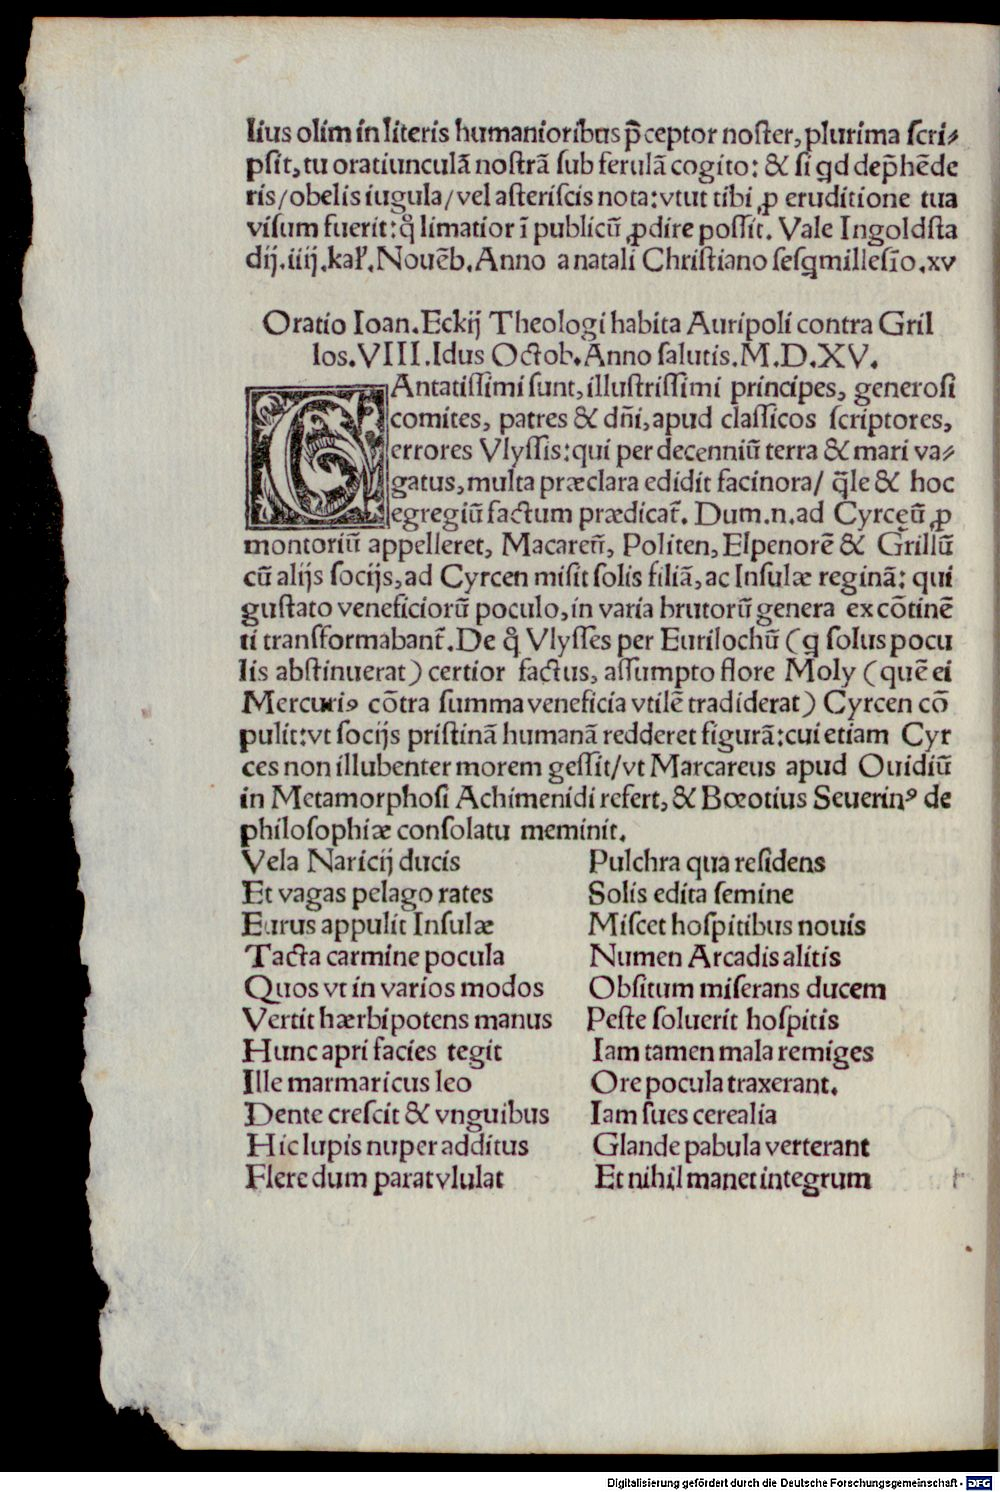 lius olim in literis humanioribus p̄ceptor noster, plurima scri⸗
psit, tu oratiunculā nostrā sub ferulā cogito: & si qd dep̄hēde
ris/obelis iugula/vel asteriscis nota: vtut tibi ꝓ eruditione tua
visum fuerit: q̊ limatior ī publicū ꝓdire possit. Vale Ingoldsta
dij. iiij. kal̓. Nouēb. Anno a natali Christiano sesqmillesīo. xv
Oratio Ioan. Eckij Theologi habita Auripoli contra Gril
los. VIII. Idus Octob. Anno salutis. M.D.XV.
CAntatissimi sunt, illustrissimi principes, generosi
comites, patres & dn̄i, apud classicos scriptores,
errores Vlyssis: qui per decenniū terra & mari va⸗
gatus, multa præclara edidit facinora/ q̄le & hoc
egregiū factum prædicat̄. Dum .n. ad Cyrceū ꝓ
montoriū appelleret, Macareū, Politen, Elpenorē & Grillū
cū alijs socijs, ad Cyrcen misit solis filiā, ac Insulæ reginā: qui
gustato veneficiorū poculo, in varia brutorū genera ex cōtinē
ti transformabant̄. De q̊ Vlysses per Eurilochū (q solus pocu
lis abstinuerat) certior factus, assumpto flore Moly (quē ei
Mercuriꝰ cōtra summa veneficia vtilē tradiderat) Cyrcen cō
pulit: vt socijs pristinā humanā redderet figurā: cui etiam Cyr
ces non illubenter morem gessit/ vt Marcareus apud Ouidiū
in Metamorphosi Achimenidi refert, & Bœotius Seuerinꝰ de
philosophiæ consolatu meminit.
Vela Naricij ducis
Et vagas pelago rates
Eurus appulit Insulæ
Tacta carmine pocula
Quos vt in varios modos
Vertit hærbipotens manus
Hunc apri facies tegit
Ille marmaricus leo
Dente crescit & vnguibus
Hic lupis nuper additus
Flere dum parat vlulat
Pulchra qua residens
Solis edita semine
Miscet hospitibus nouis
Numen Arcadis alitis
Obsitum miserans ducem
Peste soluerit hospitis
Iam tamen mala remiges
Ore pocula traxerant.
Iam sues cerealia
Glande pabula verterant
Et nihil manet integrum
Digitalisierung gefördert durch die Deutsche Forschungsgemeinschaft - DFG